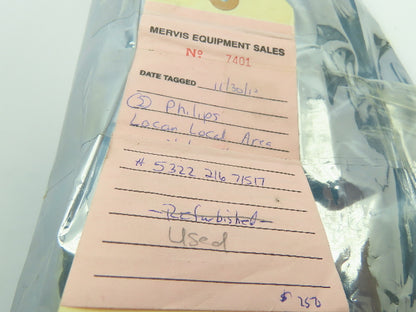 MERVIS EQUIPMENT SALES
No 7401
DATE TAGGED 11/30/1
③ Philips
Local Area
# 5322 216 71517
Refurbished
Used
$ 250